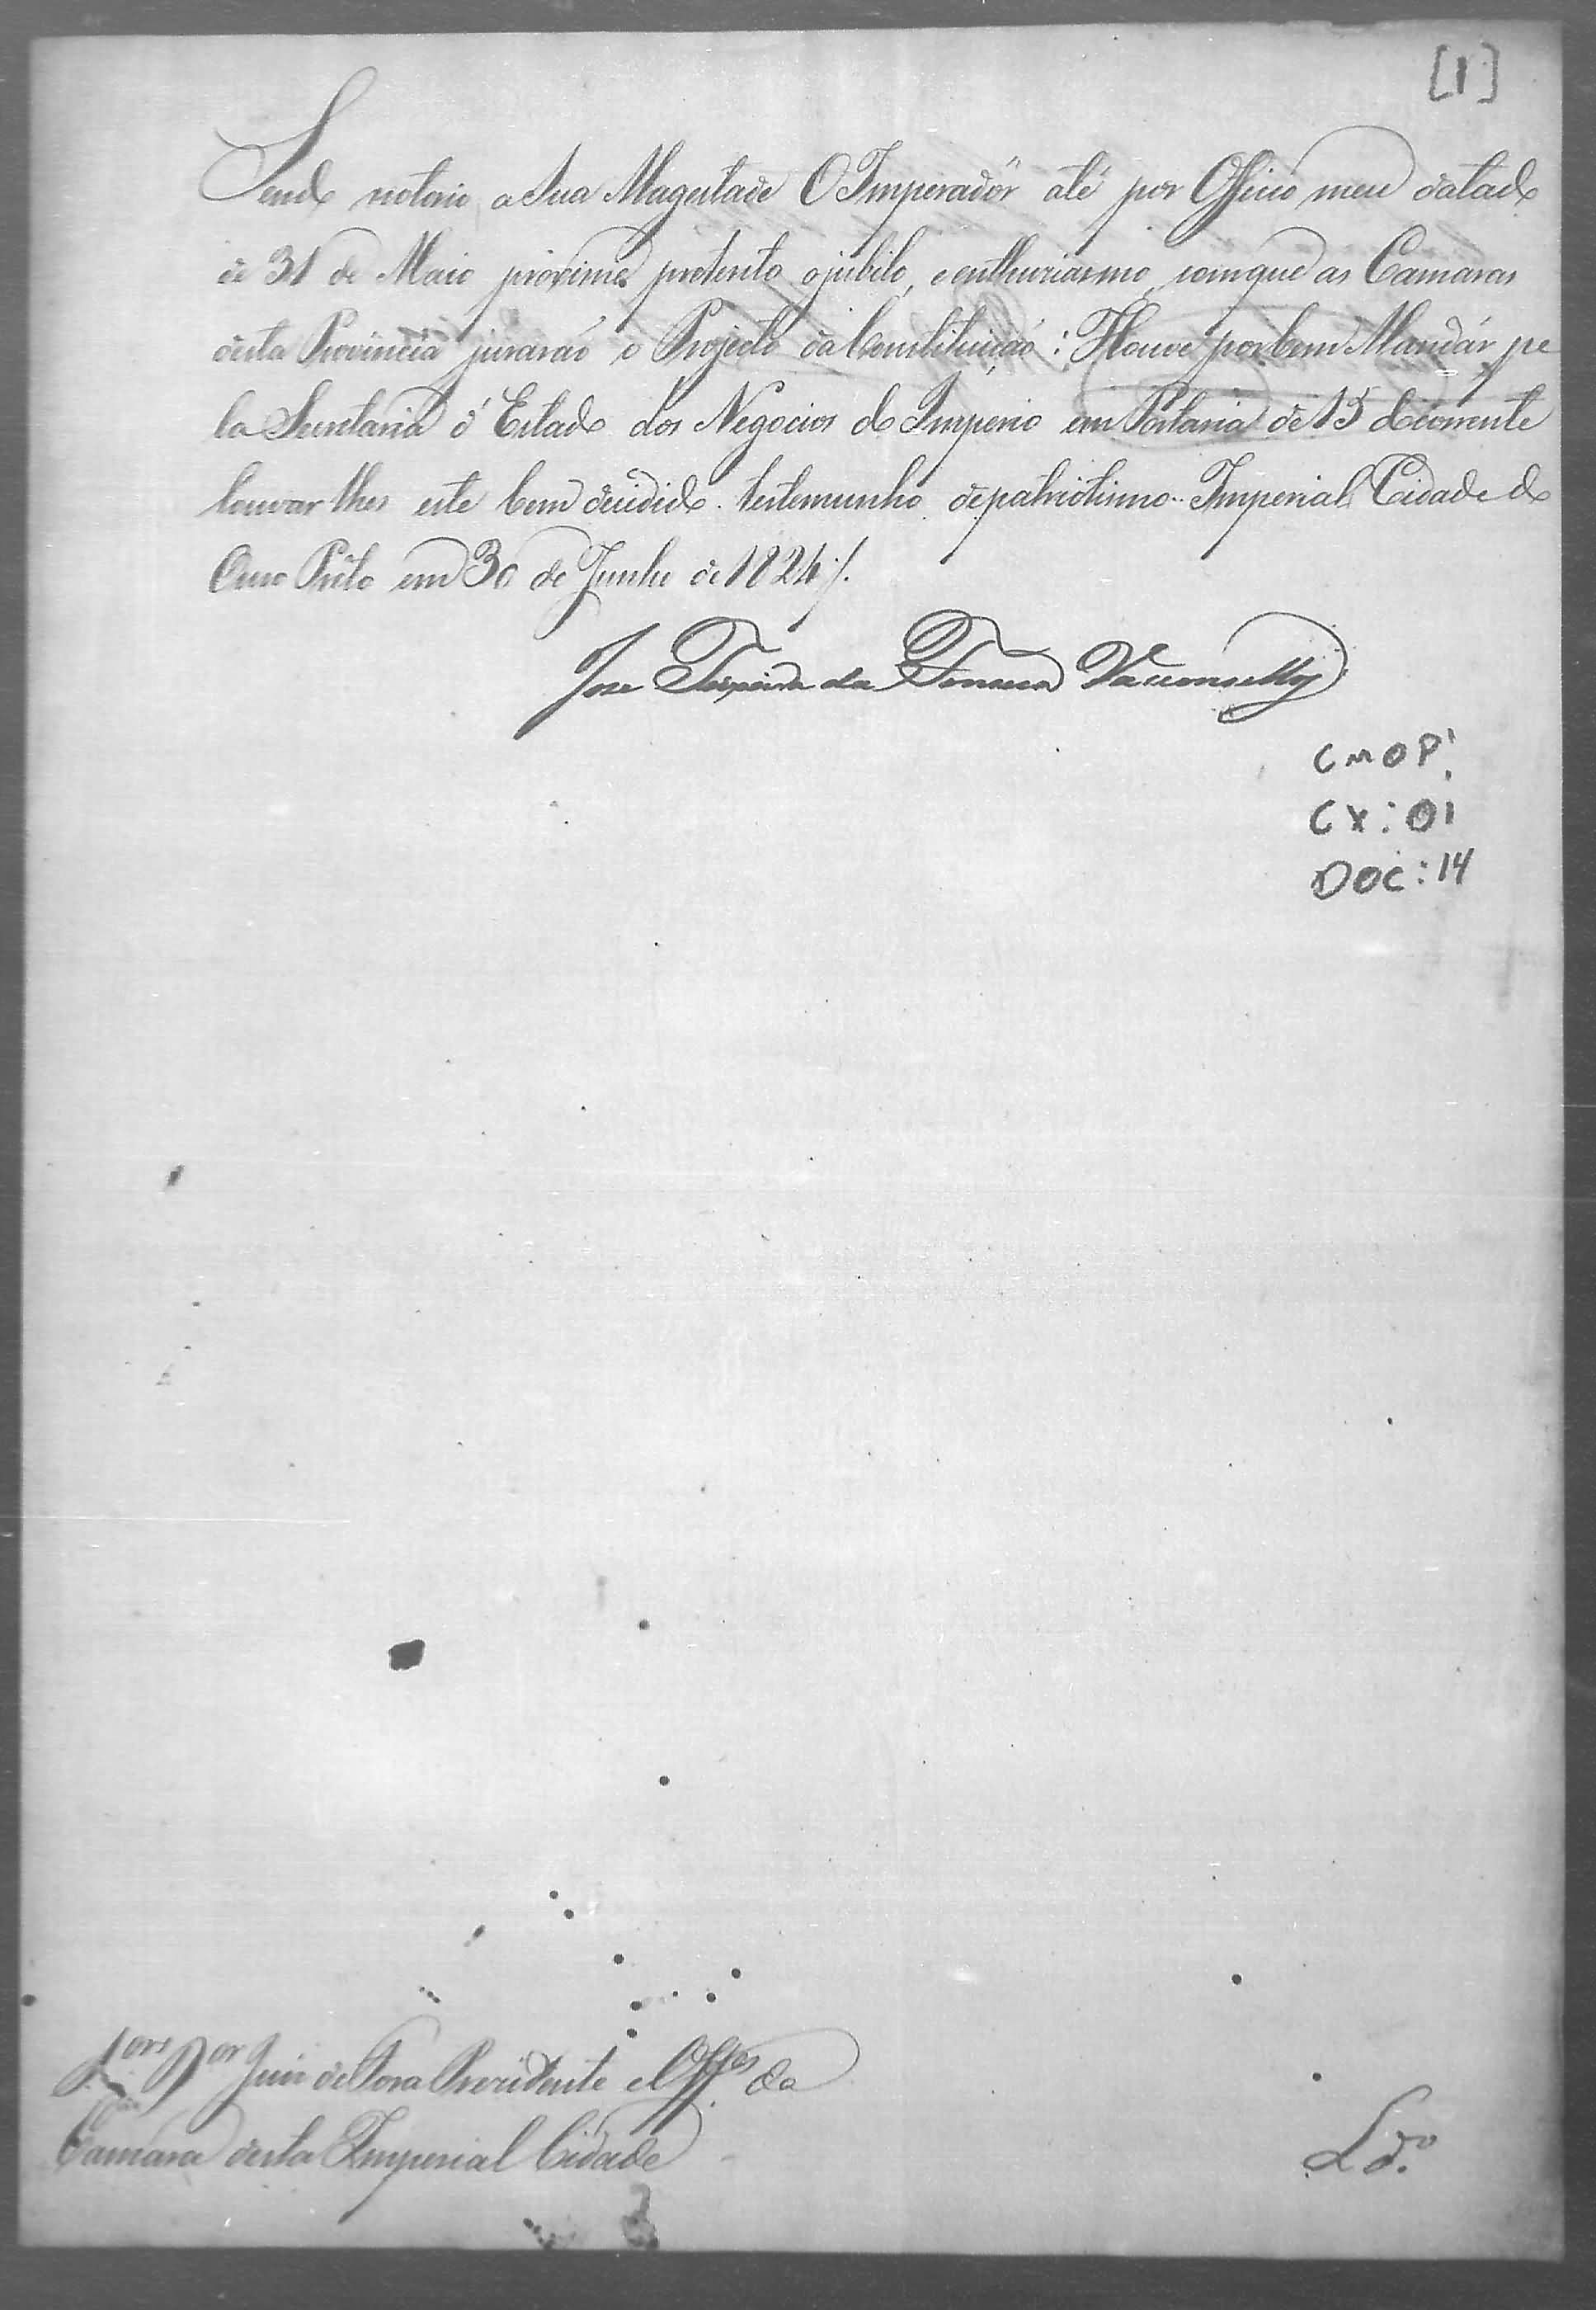 [1]
Sendo notorio a Sua Magestade O Imperadór até por Officio meu datado
de 31 de Maio proximo preterito o jubilo, e enthusiasmo, com que as Camaras
desta Provincia jurarão o Projecto da Constituição: Houve por bem Mandár pe
la Secretaria d'Estado dos Negocios do Imperio em Portaria de 15 do corrente
louvar lhes este bem decidido testemunho de patriotismo. Imperial Cidade do
Ouro Prêto em 30 de Junho de 1824/.
Jose Teixeira da Fonseca Vasconcellos
CMOP.
CX: 01
DOC: 14
Snres Dor Juiz de Fora Prezidente e Offes da
Camara desta Imperial Cidade
Ldo.